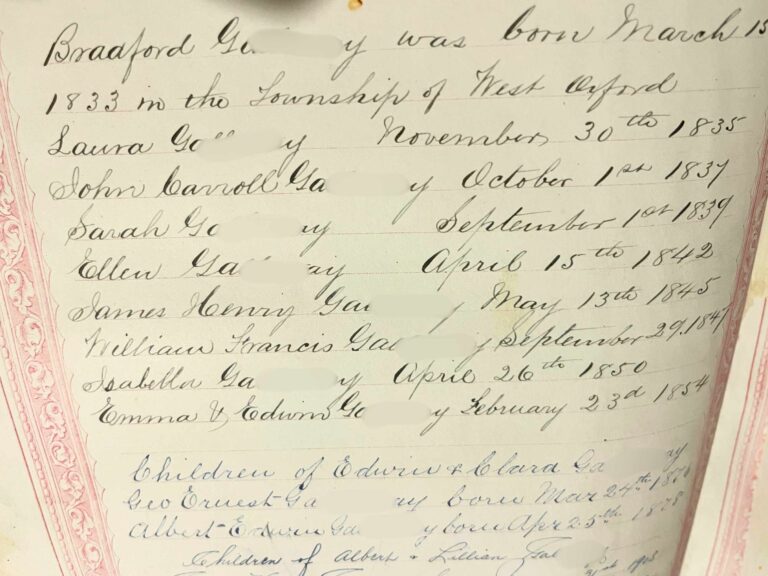 Bradford Ga y was born March 15
1833 in the Township of West Oxford
Laura Ga y November 30th 1835
John Carroll Ga y October 1st 1837
Sarah Ga ay September 1st 1839
Ellen Ga ay April 15th 1842
James Henry Ga y May 13th 1845
William Francis Ga y September 29, 1847
Isabella Ga y April 26th 1850
Emma & Edwin Ga y February 23d 1854
Children of Edwin & Clara Ga ay
Geo Ernest Ga ay born Mar 24th
Albert Edwin Ga y born Apr 25th 1878
Children of Albert & Lillian